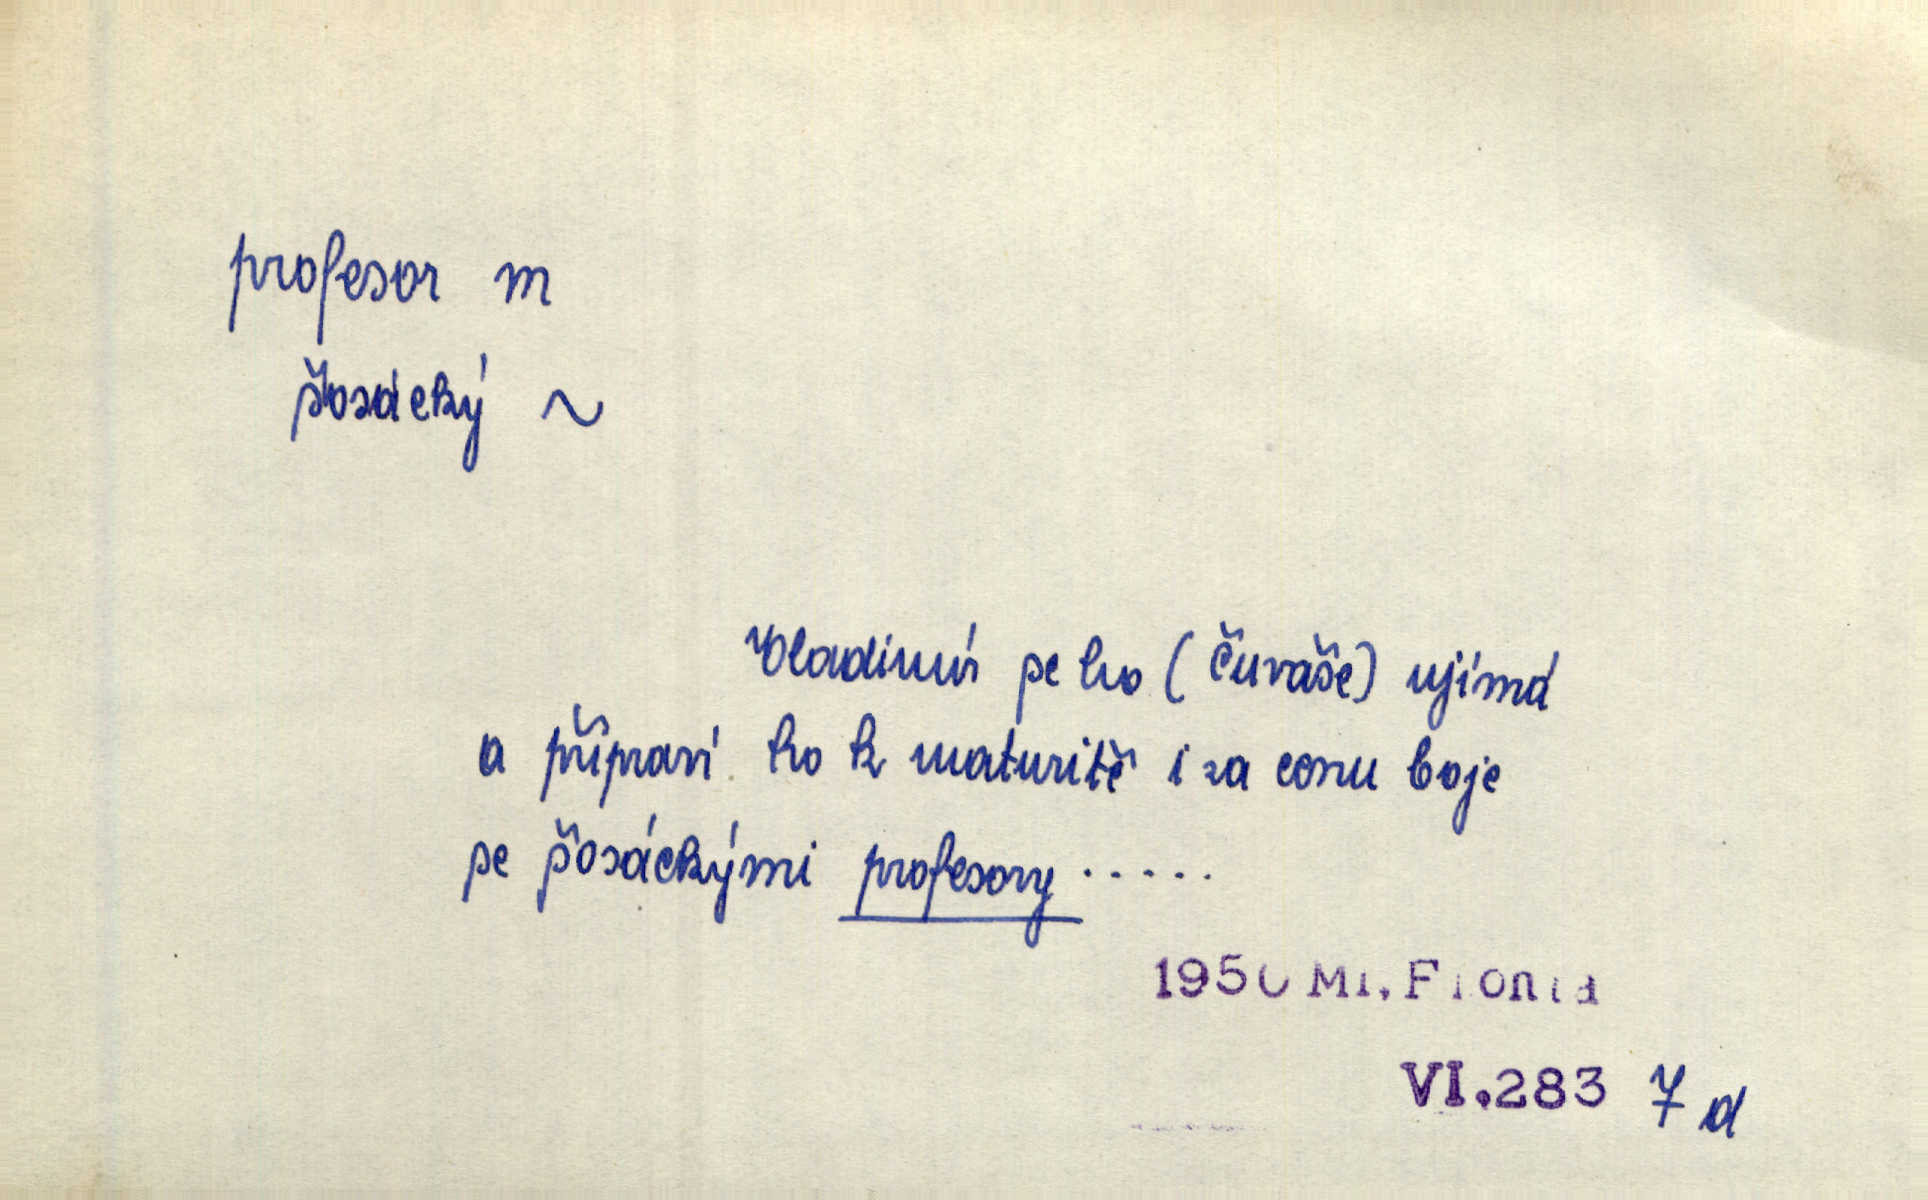 profesor m
šosácký ~
Vladimír se ho (čuváše) ujímá
a připraví ho k maturitě i za cenu boje
se šosáckými profesory.....
1950 Ml. Fronta
VI.283 7d